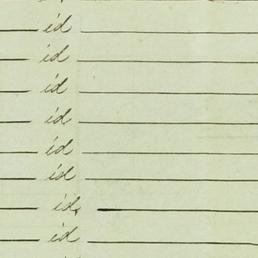 id
id
id
id
id
id
id,
id